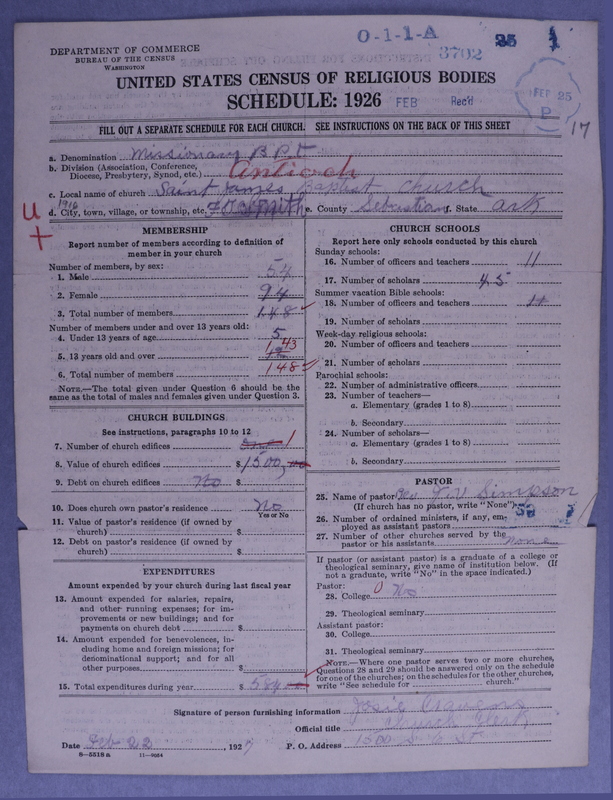 O-1-1-A
3702
25 1
DEPARTMENT OF COMMERCE
BUREAU OF THE CENSUS
WASHINGTON
UNITED STATES CENSUS OF RELIGIOUS BODIES
SCHEDULE: 1926 FEB Rec'd
FEB 25
P
17
FILL OUT A SEPARATE SCHEDULE FOR EACH CHURCH. SEE INSTRUCTIONS ON THE BACK OF THIS SHEET
a. Denomination Missionary B P T
b. Division (Association, Conference,
Diocese, Presbytery, Synod, etc.) Antioch
c. Local name of church Saint James Baptist Church
1916
d. City, town, village, or township, etc. Ft Smith e. County Sebastian f. State Ark
U
+
MEMBERSHIP
Report number of members according to definition of
member in your church
Number of members, by sex:
1. Male 54
2. Female 94
3. Total number of members 148
Number of members under and over 13 years old:
4. Under 13 years of age 5
5. 13 years old and over 143
6. Total number of members 148
NOTE.—The total given under Question 6 should be the
same as the total of males and females given under Question 3.
CHURCH BUILDINGS
See instructions, paragraphs 10 to 12
7. Number of church edifices 1
8. Value of church edifices $1500,00
9. Debt on church edifices No $
10. Does church own pastor's residence No
Yes or No
11. Value of pastor's residence (if owned by
church) $
12. Debt on pastor's residence (if owned by
church) $
EXPENDITURES
Amount expended by your church during last fiscal year
13. Amount expended for salaries, repairs,
and other running expenses; for im-
provements or new buildings; and for
payments on church debt $
14. Amount expended for benevolences, in-
cluding home and foreign missions; for
denominational support; and for all
other purposes $
15. Total expenditures during year $584
CHURCH SCHOOLS
Report here only schools conducted by this church
Sunday schools:
16. Number of officers and teachers 11
17. Number of scholars 45
Summer vacation Bible schools:
18. Number of officers and teachers
19. Number of scholars
Week-day religious schools:
20. Number of officers and teachers
21. Number of scholars
Parochial schools:
22. Number of administrative officers
23. Number of teachers—
a. Elementary (grades 1 to 8)
b. Secondary
24. Number of scholars—
a. Elementary (grades 1 to 8)
b. Secondary
PASTOR
25. Name of pastor Rev J. V Simpson
(If church has no pastor, write "None")
26. Number of ordained ministers, if any, em-
ployed as assistant pastors
27. Number of other churches served by the
pastor or his assistants None
If pastor (or assistant pastor) is a graduate of a college or
theological seminary, give name of institution below. (If
not a graduate, write "No" in the space indicated.)
Pastor:
28. College 0 No
29. Theological seminary
Assistant pastor:
30. College
31. Theological seminary
NOTE.—Where one pastor serves two or more churches,
Questions 28 and 29 should be answered only on the schedule
for one of the churches; on the schedules for the other churches,
write "See schedule for church."
Signature of person furnishing information Josie
Official title Church Clerk
Date Feb 22, 1927 P. O. Address
8—5518a 11—9054